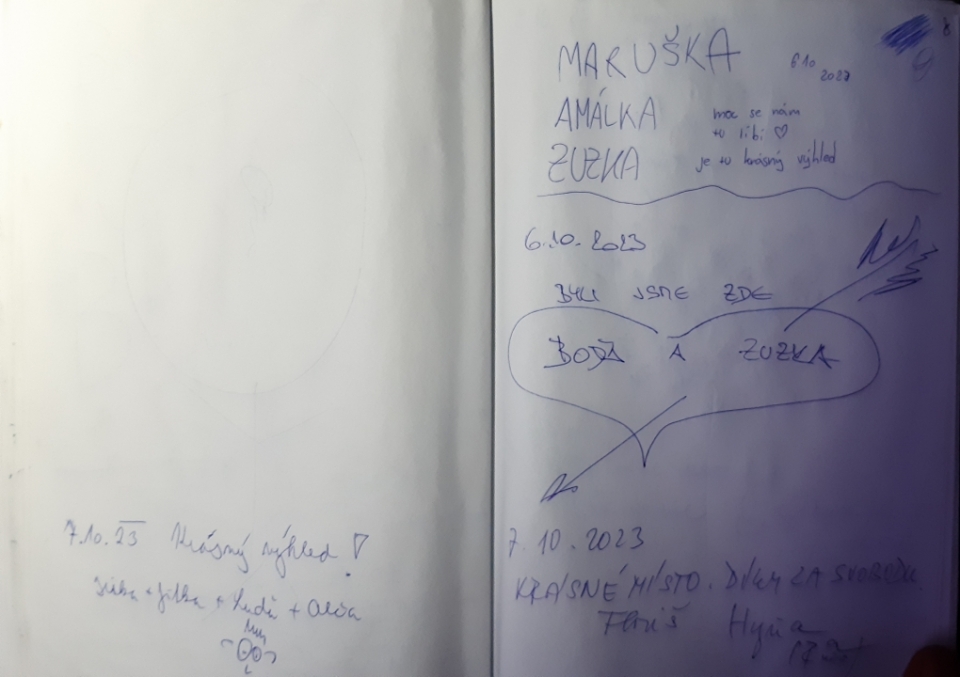 7.10.23 Krásný výhled!
Jirka + Jitka + Luďa +
MARUŠKA
6.10
2023
AMÁLKA
ZUZKA
moc se nám
to líbí ♡
je tu krásný výhled
6.10.2023
BYLI JSME ZDE
A ZUZKA
7.10.2023
KRÁSNÉ MÍSTO. DÍKY ZA SVOBODU